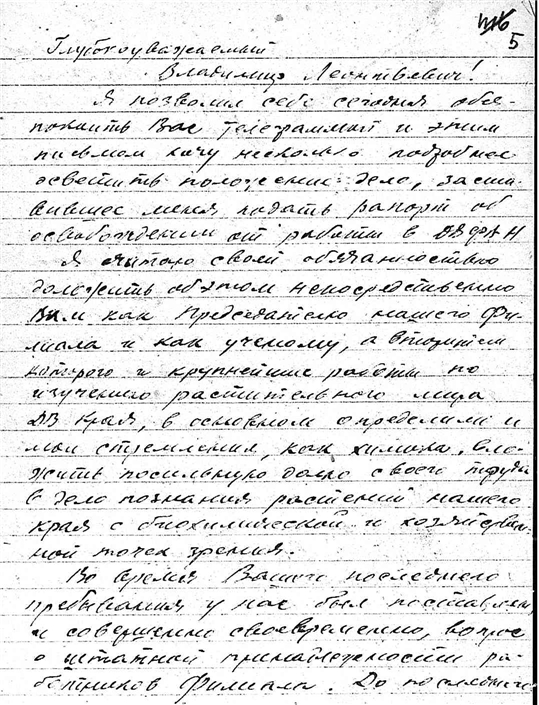 5
Глубокоуважаемый
Владимир Леонтьевич!
Я позволил себе сегодня обес-
покоить Вас телеграммой и этим
письмом хочу несколько подробнее
осветить положение дела, заста-
вившее меня подать рапорт об
освобождении от работы в ДВФАН
Я считаю своей обязанностью
доложить об этом непосредственно
Вам как Председателю нашего Фи-
лиала и как ученому, авторитет
которого и крупнейшие работы по
изучению растительного мира
ДВ Края, в основном определили и
мои стремления, как химика, вло-
жить посильную долю своего труда
в дело познания растений нашего
края с биохимической и хозяйствен-
ной точек зрения.
Во время Вашего последнего
пребывания у нас был поставлен,
и совершенно своевременно, вопрос
о штатной принадлежности ра-
ботников Филиала. До последнего